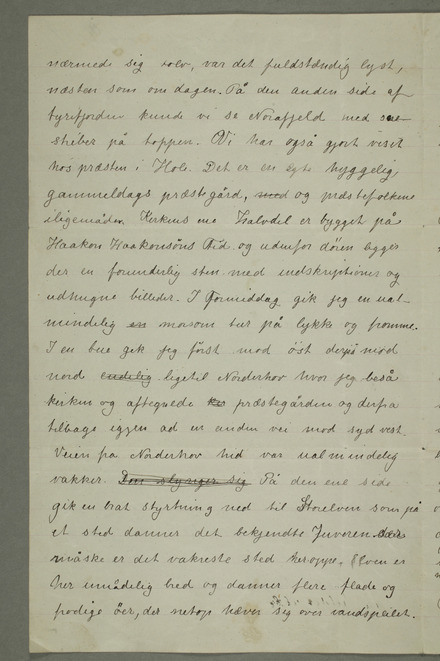 nærmede sig tolv, var det fuldstændig lyst,
næsten som om dagen. På den anden side af
tyrifjorden kunde vi se Norafjeld med sne-
striber på toppen. Vi har også gjort visit
hos præsten i Hole. Det er en egte hyggelig
gammeldags præstegård, med og præstefolkene
iligemåden. Kirkens ene halvdel er bygget på
Haakon Haakonsöns Tid og udenfor dören ligger
der en forunderlig sten med indskriptions og
udhugne billeder. I Formiddag gik jeg en ual-
mindelig en morsom tur på lykke og fromme.
I en bue gik jeg först mod öst derpå mod
nord endelig ligetil Norderhov hvor jeg beså
kirken og aftegnede præstegården og derfra
tilbage igjen ad en anden vei mod syd vest.
Veien fra Norderhov hid var ualmindelig
vakker. Den slynger sig På den ene side
gik en brat styrtning ned til Storelven som på
et sted danner det bekjendte Juveren der
måske er det vakreste sted heroppe. Elven er
her umådelig bred og danner flere flade og
frodige öer, der netop hæver sig over vandspeilet.